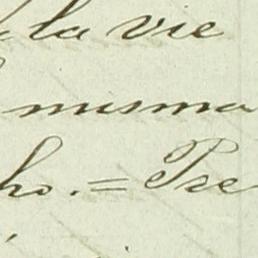 la vie
misma
ho. = Pre